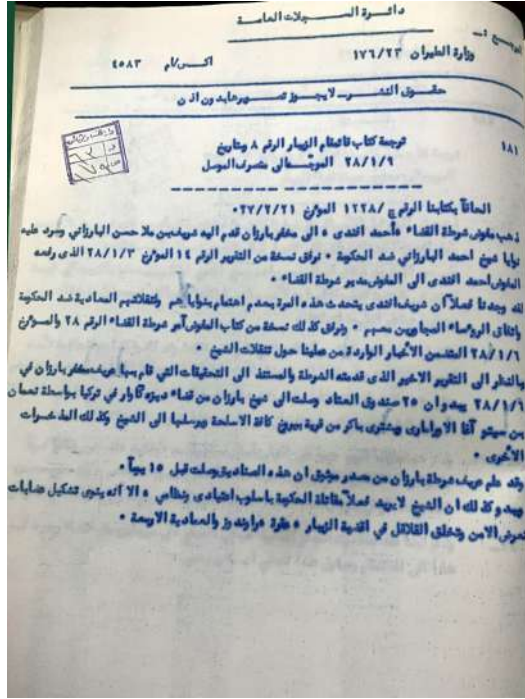 دائرة الســـــجلات العامـة
وزارة الطيران ١٧٦/٢٣ اكـس/ام ٤٥٨٣
حقــوق النشـــر ــ لا يجــوز تصــويرها بدون اذن
١٨١ ترجمة كتاب قائمقام الزيبار الرقم ٨ وبتاريخ
٢٨/١/٩ الموجه الى متصرف الموصل
الحاقاً بكتابنا الرقم ج/١٢٢٨ المؤرخ ٢٧/٢/٢١٠
ذهب مفوض شرطة القضاء «أحمد افندى» الى مخفر بارزان قدم اليه شريف بن ملا حسن البارزاني وسرد عليه
نوايا شيخ احمد البارزاني ضد الحكومة ٠ نرفق نسخة من التقرير الرقم ١٤ المؤرخ ٢٨/١/٣ الذى رفعه
المفوض احمد افندى الى المفوض مدير شرطة القضاء ٠
لقد وجدنا فعلاً أن شريف افندى يتحدث هذه المرة بعدم اهتمام بنوايا هم وانتقالاتهم المعادية ضد الحكومة
واتفاق الروساء المجاورين معهم ٠ ونرفق كذلك نسخة من كتاب المفوض آمر شرطة القضاء الرقم ٢٨ والمؤرخ
٢٨/١/٦ المتضمن الأخبار الواردة من عقرة حول تنقلات الشيخ ٠
وبالنظر الى التقرير الاخير الذى قدمته الشرطة والمستند الى التحقيقات التي قام بها عريف مخفر بارزان في
٢٨/١/١ يبدو ان ٢٥ صندوق العتاد وصلت الى شيخ بارزان من قضاء ديزه كاوار في تركيا بواسطة نعمان
بن سيتو آغا الاورامارى ويشترى باكر من قرية بيروخ كافة الاسلحة ويرسلها الى الشيخ وكذلك المدخرات
الاخرى ٠
وقد علم عريف شرطة بارزان من مصدر موثوق ان هذه العتاد وصلت قبل ١٥ يوماً ٠
فيبدو كذلك ان الشيخ لا يريد فعلاً مقاتلة الحكومة باسلوب اعتيادى ونظامي ٠ الا أنه ينوى تشكيل عصابات
تعرض الامن وتخلق القلاقل في اقضية الزيبار ٠ عقرة ٠ راوندوز والعمادية الاربعة ٠